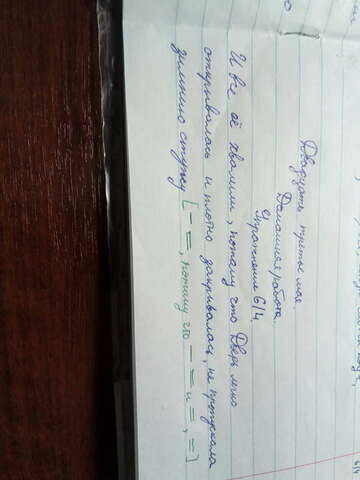 Двадцать третье мая.
Домашняя работа.
Упражнение 614
И все её хвалили, потому что Дверь легко
открывалась и плотно закрывалась, не пропускала
зимнюю стужу [– =, потому что – = и =, =]
614